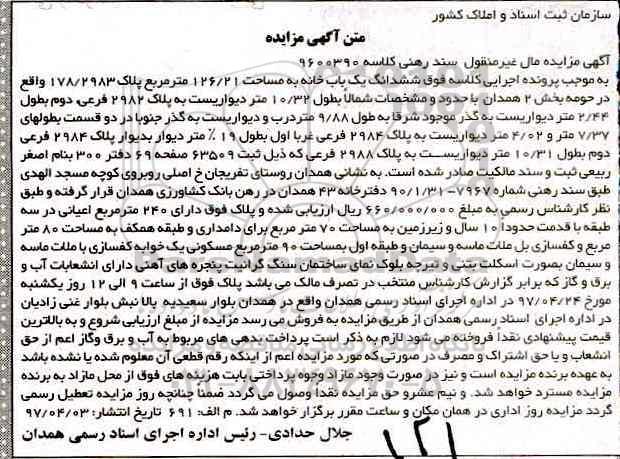 سازمان ثبت اسناد و املاک کشور
متن آگهی مزایده
آگهی مزایده مال غیرمنقول سند رهنی کلاسه ۹۶۰۰۳۹۰
به موجب پرونده اجرایی کلاسه فوق ششدانگ یک باب خانه به مساحت ۱۲۶/۲۱ مترمربع پلاک ۱۷۸/۲۹۸۳ واقع
در حومه بخش ۲ همدان با حدود و مشخصات شمالاً بطول ۱۰/۳۲ متر دیواریست به پلاک ۲۹۸۲ فرعی، دوم بطول
۲/۴۴ متر دیواریست به گذر موجود شرقا به طول ۹/۸۸ متردرب و دیواریست به گذر جنوبا در دو قسمت بطولهای
۷/۳۷ متر و ۴/۰۲ متر دیواریست به پلاک ۲۹۸۴ فرعی غربا اول بطول ۱۹ ٪ متر دیوار بدیوار پلاک ۲۹۸۴ فرعی
دوم بطول ۱۰/۳۱ متر دیواریست به پلاک ۲۹۸۸ فرعی که ذیل ثبت ۶۳۵۰۹ صفحه ۶۹ دفتر ۳۰۰ بنام اصغر
ربیعی ثبت و سند مالکیت صادر شده است. به نشانی همدان روستای تفریجان خ اصلی روبروی کوچه مسجد الهدی
طبق سند رهنی شماره ۷۹۶۷-۹۰/۱/۳۱ دفترخانه ۴۳ همدان در رهن بانک کشاورزی همدان قرار گرفته و طبق
نظر کارشناس رسمی به مبلغ ۶۶۰/۰۰۰/۰۰۰ ریال ارزیابی شده و پلاک فوق دارای ۲۴۰ مترمربع اعیانی در سه
طبقه با قدمت حدودا ۱۰ سال و زیرزمین به مساحت ۷۰ متر مربع برای دامداری و طبقه همکف به مساحت ۸۰ متر
مربع و کفسازی بل ملات ماسه و سیمان و طبقه اول بمساحت ۹۰ مترمربع مسکونی یک خوابه کفسازی با ملات ماسه
و سیمان بصورت اسکلت بتنی و تیرچه بلوک نمای ساختمان سنگ گرانیت پنجره های آهنی دارای انشعابات آب و
برق و گاز که برابر گزارش کارشناس منتخب در تصرف مالک می باشد پلاک فوق از ساعت ۹ الی ۱۲ روز یکشنبه
مورخ ۹۷/۰۴/۲۴ در اداره اجرای اسناد رسمی همدان واقع در همدان بلوار سعیدیه بالا نبش بلوار غنی زادیان
در اداره اجرای اسناد رسمی همدان از طریق مزایده به فروش می رسد مزایده از مبلغ ارزیابی شروع و به بالاترین
قیمت پیشنهادی نقداً فروخته می شود لازم به ذکر است پرداخت بدهی های مربوط به آب و برق وگاز اعم از حق
انشعاب و یا حق اشتراک و مصرف در صورتی که مورد مزایده اعم از اینکه رقم قطعی آن معلوم شده یا نشده باشد
به عهده برنده مزایده است و نیز در صورت وجود مازاد وجوه پرداختی بابت هزینه های فوق از محل مازاد به برنده
مزایده مسترد خواهد شد. و نیم عشرو حق مزایده نقداً وصول می گردد ضمناً چنانچه روز مزایده تعطیل رسمی
گردد مزایده روز اداری در همان مکان و ساعت مقرر برگزار خواهد شد. م الف: ۶۹۱ تاریخ انتشار: ۹۷/۰۴/۰۳
جلال حدادی- رئیس اداره اجرای اسناد رسمی همدان
۱۲۱